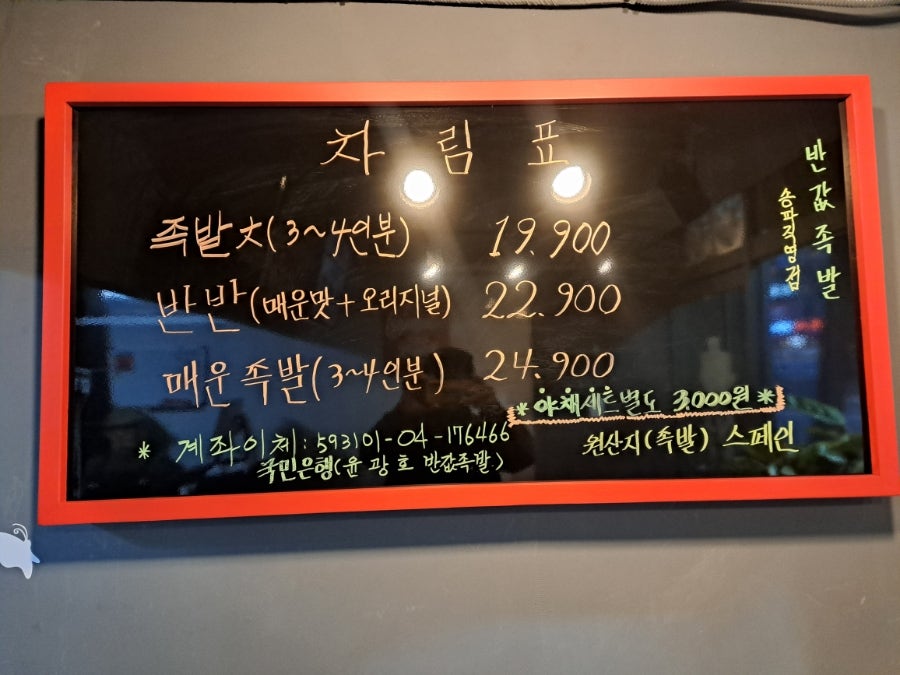 차림표
족발大(3~4인분) 19.900
반반(매운맛+오리지널) 22.900
매운족발(3~4인분) 24.900
*야채세트별도 3000원*
* 계좌이체:593101-04-176466
국민은행(윤광호 반값족발)
원산지(족발) 스페인
반값족발
송파직영점